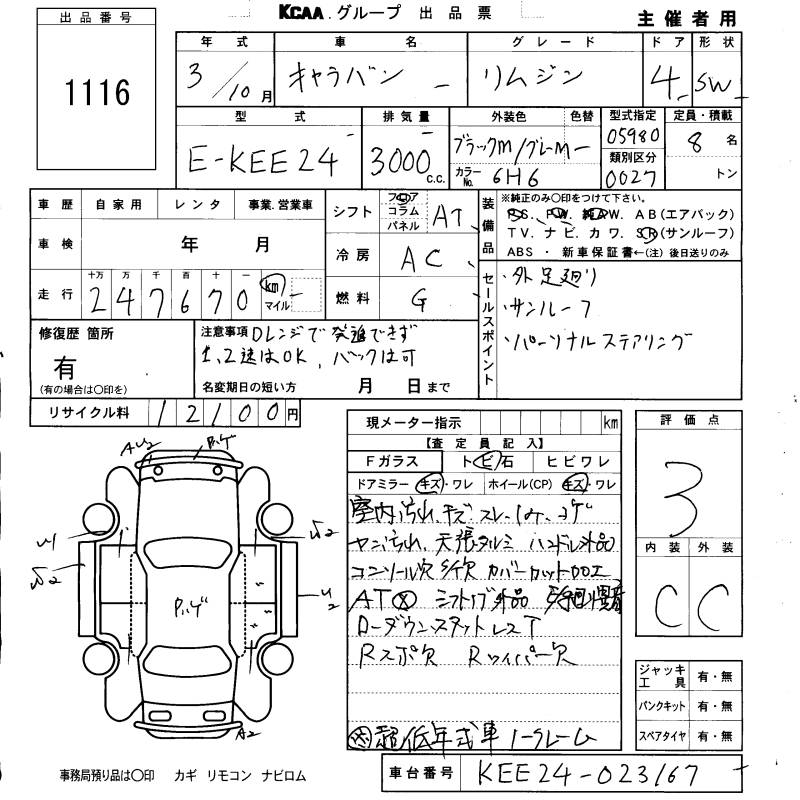 KCAA.グループ 出品票
主催者用
出品番号
1116
年式 車名 グレード ドア 形状
3/10月 キャラバン リムジン 4 SW
型式 排気量 外装色 色替 型式指定 定員・積載
E-KEE24 3000 c.c. ブラックM/グレーM 05980 8名
カラーNo. 6H6 類別区分 0027 トン
車歴 自家用 レンタ 事業.営業車
シフト フロア コラム パネル AT
装備品 ※純正のみ○印をつけて下さい。
P.S. P.W. 純A.W. AB(エアバック)
TV. ナビ. カワ. SR(サンルーフ)
ABS ・ 新車保証書←(注) 後日送りのみ
車検 年 月
冷房 AC
走行 十万 万 千 百 十 一
247670 km マイル
燃料 G
セールスポイント
・外足廻り
・サンルーフ
・パーソナルステアリング
修復歴 箇所
有
(有の場合は○印を)
注意事項 Dレンジで発進できず
1、2速はOK、バックは可
名変期日の短い方 月 日まで
リサイクル料 12100円
現メーター指示 km
【査定員記入】
Fガラス トビ石 ヒビワレ
ドアミラー キズ・ワレ ホイール(CP) キズ・ワレ
天張タルミ ハンドル外品
AT シフトノブ外品
Rスポ欠 Rワイパー欠
超低年式車 ノークレーム
評価点
3
内装 外装
C C
ジャッキ工具 有・無
パンクキット 有・無
スペアタイヤ 有・無
A2
事務局預り品は○印 カギ リモコン ナビロム
車台番号 KEE24-023167